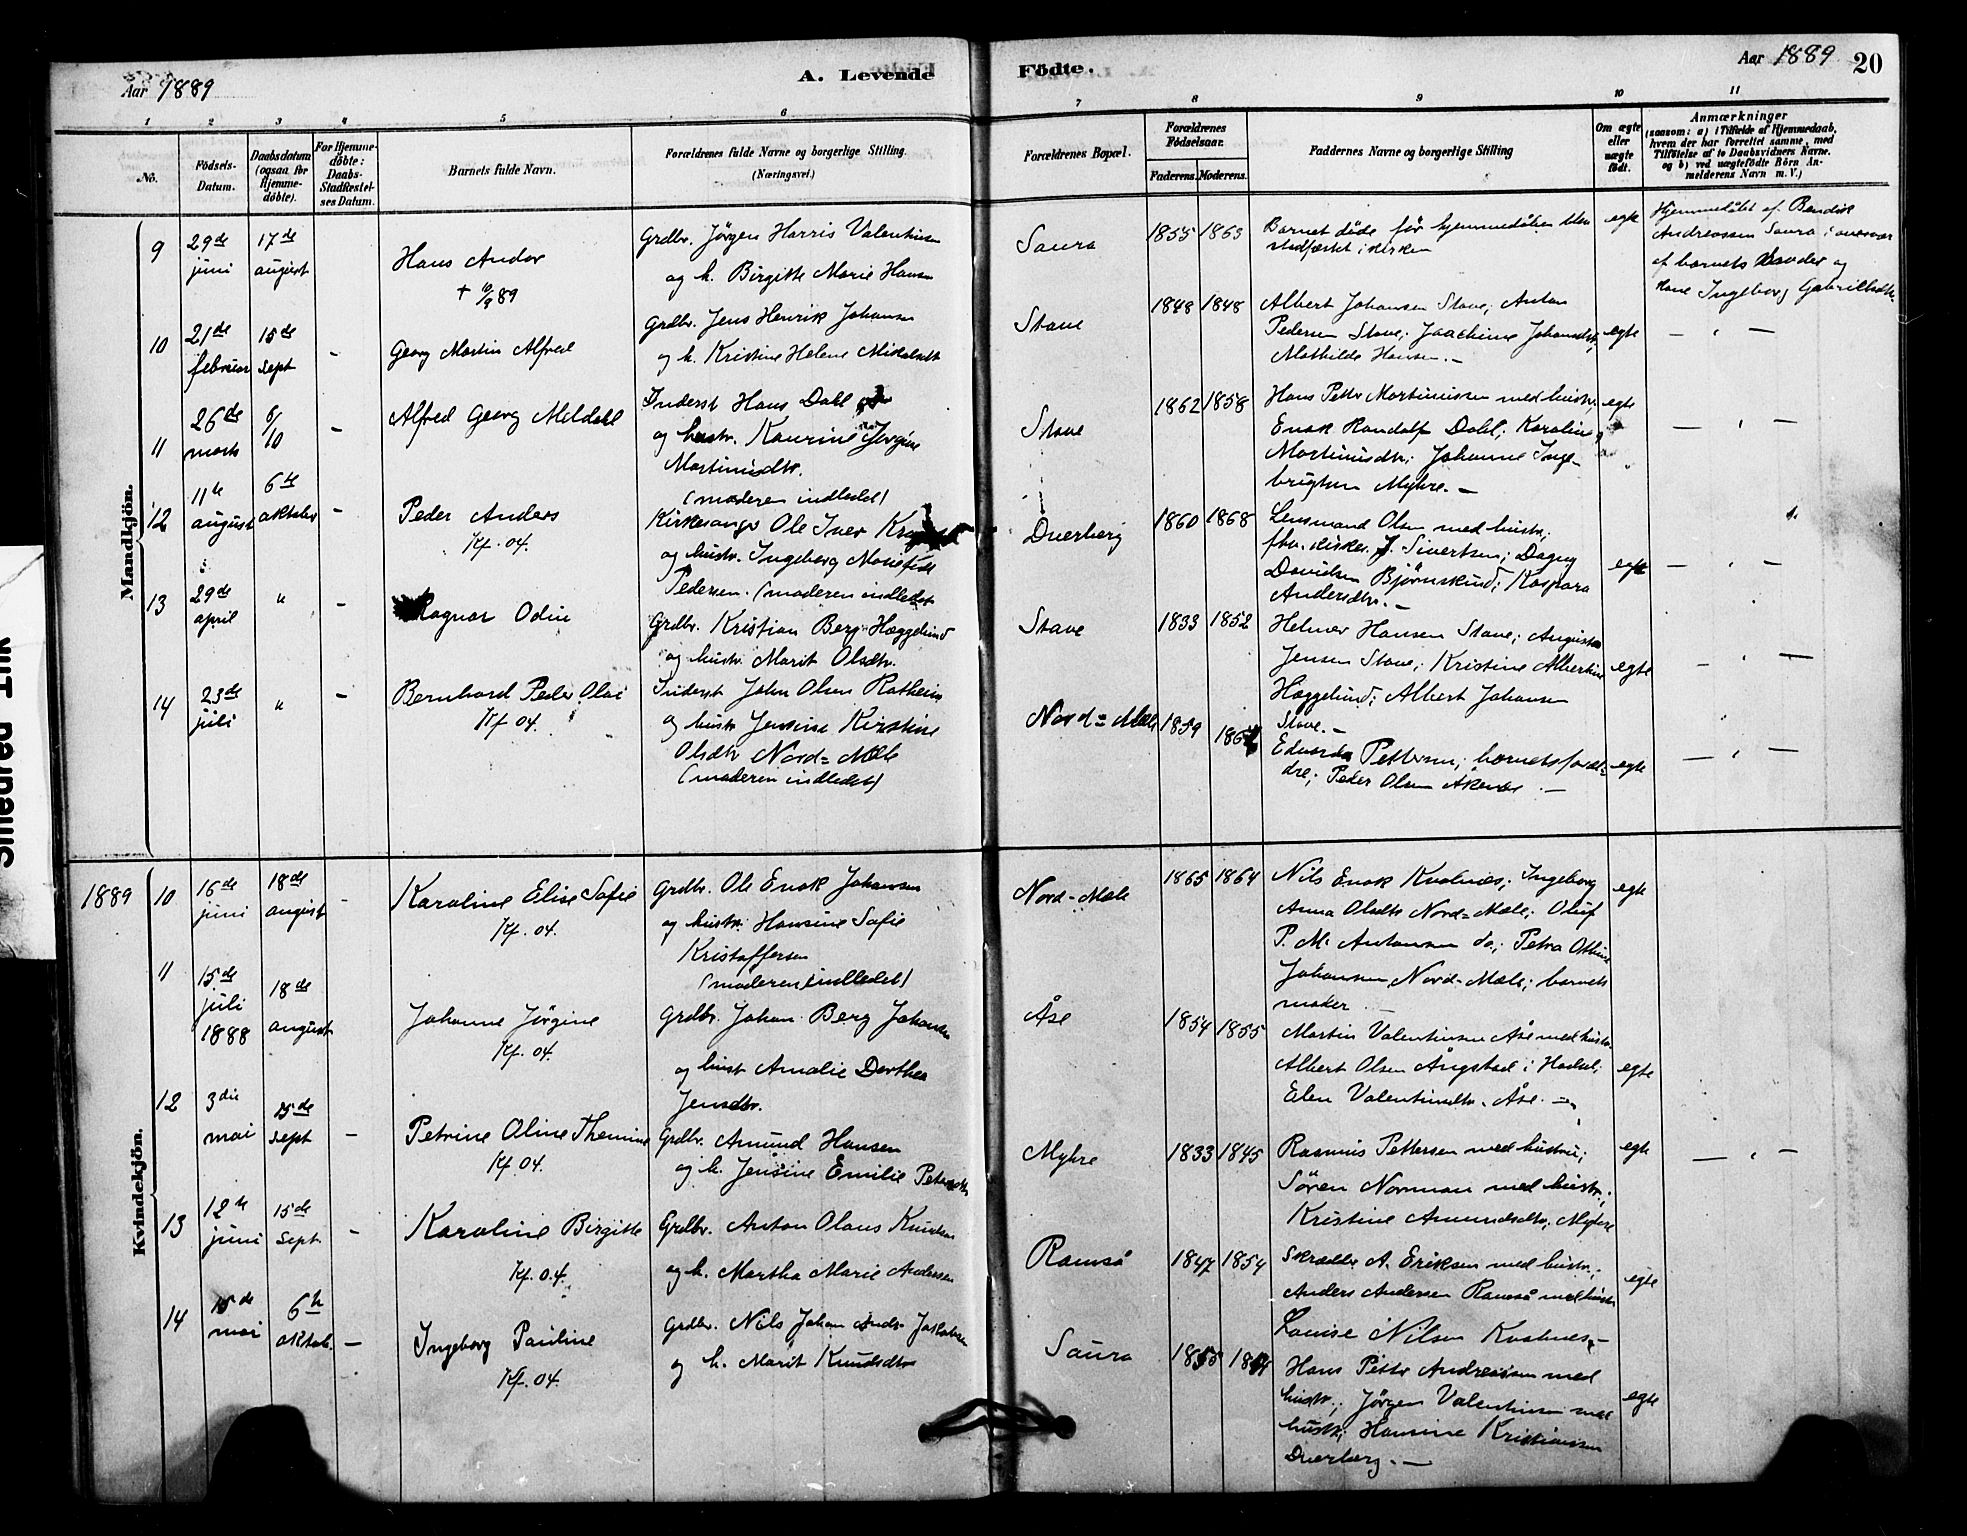 Aar 1889
A. Levende
Födte.
Aar 1889
20
1 2 3 4 5 6 7 8 9 10 11
No.
Födsels-Datum.
Daabsdatum (ogsaa for Hjemme-döbte).
For Hjemme-döbte: Daabs-Stadfæstelses Datum.
Barnets fulde Navn.
Forældrenes fulde Navne og borgerlige Stilling. (Næringsvei.)
Forældrenes Bopæl.
Forældrenes Födselsaar.
Faderens. Moderens.
Faddernes Navne og borgerlige Stilling
Om ægte eller uægte födt.
Anmærkninger
(saasom: a) i Tilfælde af Hjemmedaab, hvem der har forrettet samme, med Tilföielse af to Daabsvidners Navne, og b) ved uægtefödte Börn Anmelderens Navn m. V.)
Mandkjön.
9
29de juni
17de august
Hans Andor
+ 10/8 89
Grdbr. Jörgen Harris Valentinsen
og h. Birgitte Marie Hansen
Saura
1855 1863
Barnet döde för hjemmedåben blev
stadfæstet i kirken
egte
Hjemmedöbt af Bendik
Andreassen Saura i
af barnets og
Ingeborg
10
21de februar
15de sept
-
Georg Martin Alfred
Grdbr. Jens Henrik Johansen
og h. Kristine Helene
Stave
1848 1848
Albert Johansen Stave; Anton
Pedersen Stave;
Mathilde Hansen. -
egte
- " -
11
26de marts
6/10
-
Alfred Georg Meldahl
Inderst Hans Dahl
og hustr. Kaurine Jörgine
Martinusdtr.
(moderen indledet)
Stave
1862 1858
Hans Petter Martinussen med hustr,
Enok Randolf Dahl; Karoline
Martinusdtr; Johanne Inge-
brigtsen Myhre. -
egte
- " -
12
11te august
6te oktober
-
Peder Anders
Kf. 04.
Kirkesanger Ole Iver
og hustr. Ingeborg
Pedersen. (moderen indledet
Dverberg
1860 1868
Lensmand Olsen med hustr.;
J. Sivertsen; Dagny
Davidsen Björnskind; Kaspara
Andersdtr. -
egte
- " -
13
29de april
"
-
Ragnar Odin
Grdbr. Kristian Berg Hæggelund
og hustr. Marit Olsdtr.
Stave
1833 1852
Helmer Hansen Stave; Augusta
Jensen Stave; Kristine Albertine
Hæggelund; Albert Johansen
Stave. -
egte
- " -
14
23de juli
"
-
Bernhard Peder Olai
Kf 04.
Inderst John Olsen
og hustr Jensine Kirstine
Olsdtr Nord=Mæle
(moderen indledet)
Nord=Mæle
1859
Pettersen; barnets foræl-
dre; Peder Olsen
egte
- " -
Kvindekjön.
1889
10
16de juni
18de august
-
Karoline Elise Sofie
Kf. 04.
Grdbr. Ole Enok Johansen
og hustr. Hansine Sofie
Kristoffersen
(moderen indledet)
Nord-Mæle
1865 1864
Nils Enok Kvalnes; Ingeborg
Anna Olsdtr Nord=Mæle; Oluf
P. M. Antonsen do; Petra
Johansen Nord-Mæle; barnets
moder
egte
11
15de juli 1888
18de august
Johanne Jörgine
Kf. 04.
Grdbr. Johan Berg Johansen
og hust Amalie Dorthea
Jensdtr.
Åse
1854 1855
Martin Valentinsen Åse med hustr.
Albert Olsen Ångstad i Hadsel;
Elen Valentinsdtr. Åse. -
egte
12
3die mai
15de sept
-
Petrine Oline Themine
Kf. 04.
Grdbr. Amund Hansen
og h. Jensine Emilie
Myhre
1833 1845
Rasmus Pettersen med hustru;
Sören Norman med hustr.;
Kristine Amundsdtr, Myhre
egte
- " -
13
12te juni
15de Sept.
-
Karoline Birgitte
Kf. 04.
Grdbr. Anton Olaus Knudsen
og h. Martha Marie Andersen
Ramså
1847 1854
Skrædder A. Eriksen med hustr.;
Anders Andersen Ramså med hustr
Louise Nilsen Kvalnes -
egte
14
15de mai
6te oktob.
-
Ingeborg Pauline
Kf. 04.
Grdbr. Nils Johan Jakobsen
og h. Marit Knudsdtr
Saura
1855
Hans Petter Andreassen med
hustr.; Jörgen Valentinsen med
hustr; Hansine Kristiansen
Dverberg. -
egte